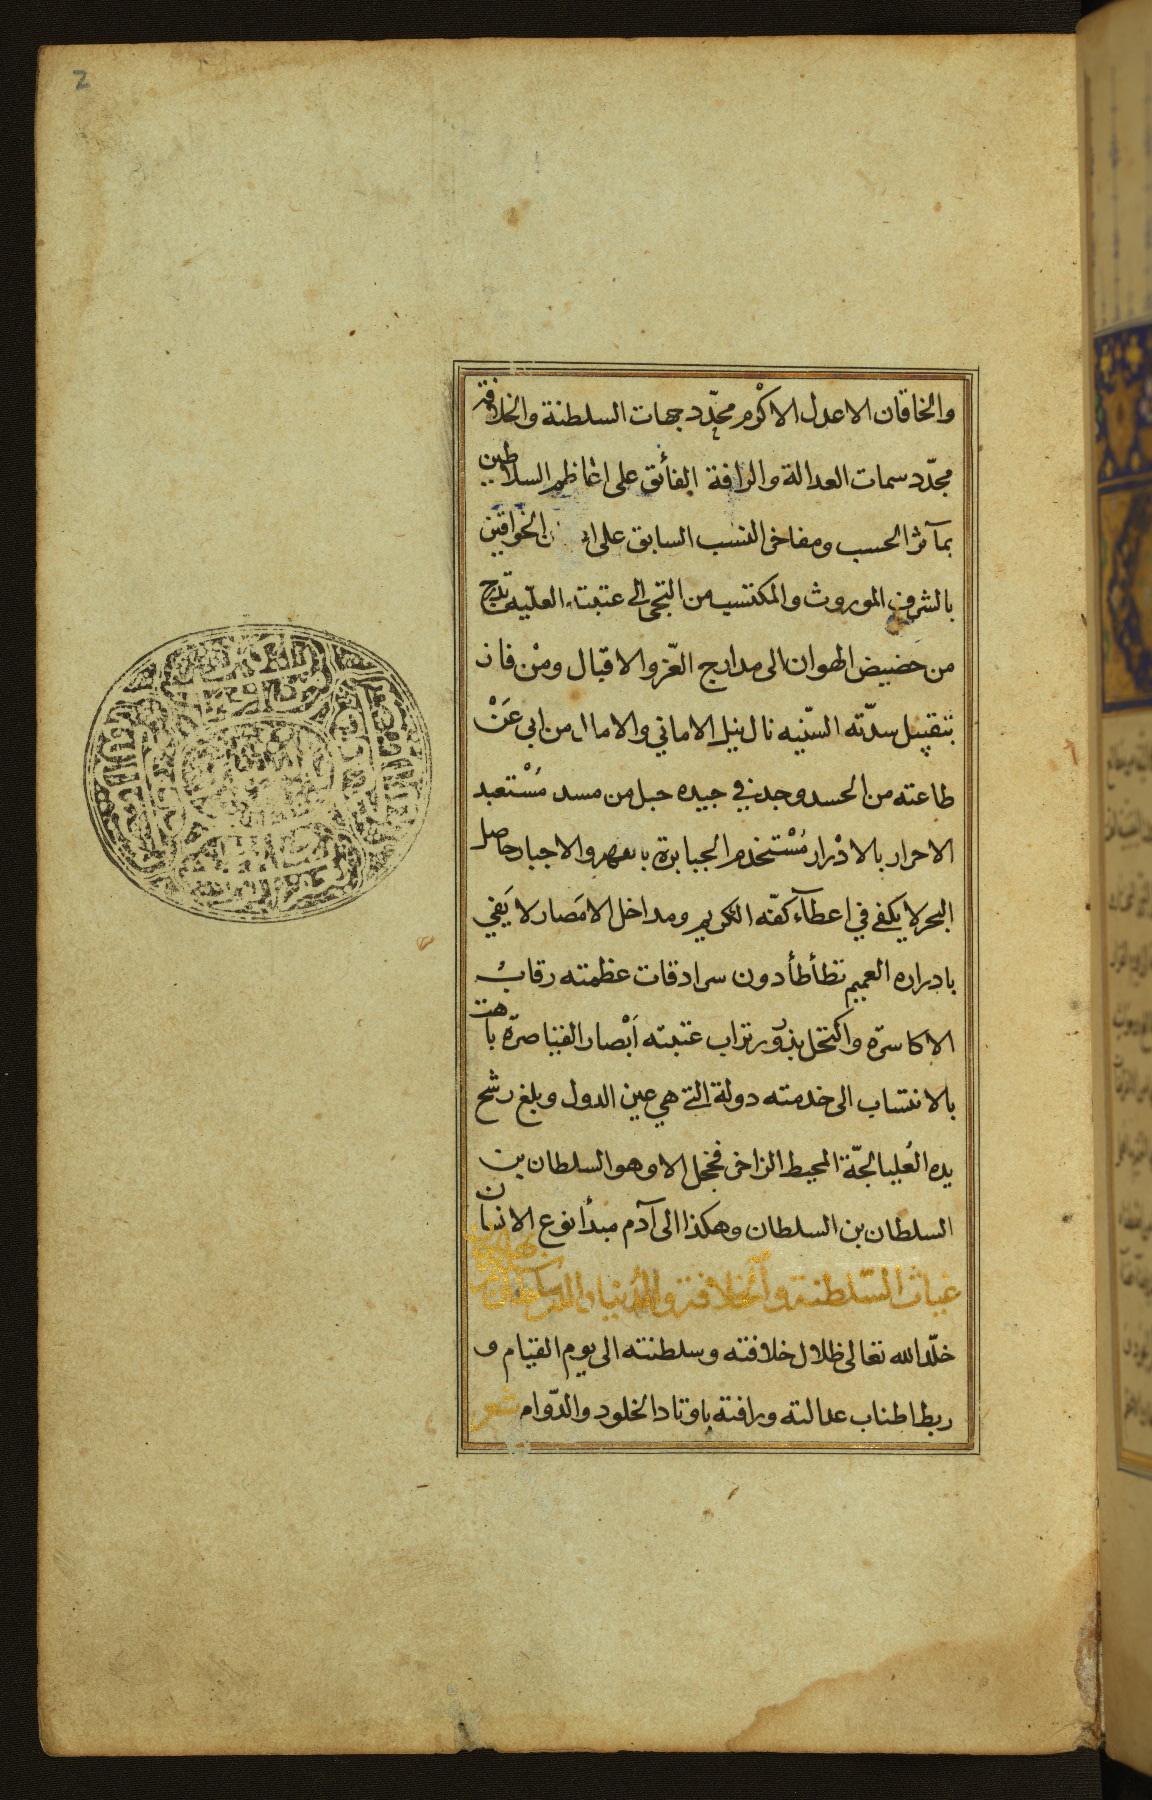 2
والخاقان الاعدل الاكْرم محدّد جهات السلطنة والخلافة
مجدّد سمات العدالة والرافة الفائق على اعاظم السلاطين
بمآثر الحسب ومفاخر النسب السابق على الخواقين
بالشرف الموروث والمكتسب من التجى الى عتبته العليّه تدرج
من حضيض الهوان الى مدارج العزّ والاقبال ومنْ فاز
بتقبيل سدّته السنّيه نال نيل الاماني والامال من ابى عَنْ
طاعته من الحسد وجد في جيده حبل من مسد مُسْتعبد
الاحرار بالادْرار مُسْتخدم الجبابرة بالقهر والاجبار حاصل
البحر لا يكفي في اعطآء كفّه الكريم ومداخل الامَصار لا يَفي
بادراره العميم تطأطأ دون سرادقات عظمته رقابُ
الاكاسرّة واكتحل بذرُور تراب عتبته اَبْصار القياصرّة باهت
بالانتساب الى خدمته دولة التي هي عين الدول وبلغ رشح
يده العُليا لجّة المحيط الزاخر فخجل الا وهو السلطان بن
السلطان بن السلطان وهكذا الى آدم مبدأ نوع الانسان
غياث السّلطنة والخلافة والدُنيا والدين
خلّد الله تعالى ظلال خلافته وسلطنته الى يوم القيام و
ربط اطناب عدالته ورافته باوتاد الخلود والدّوام شعر